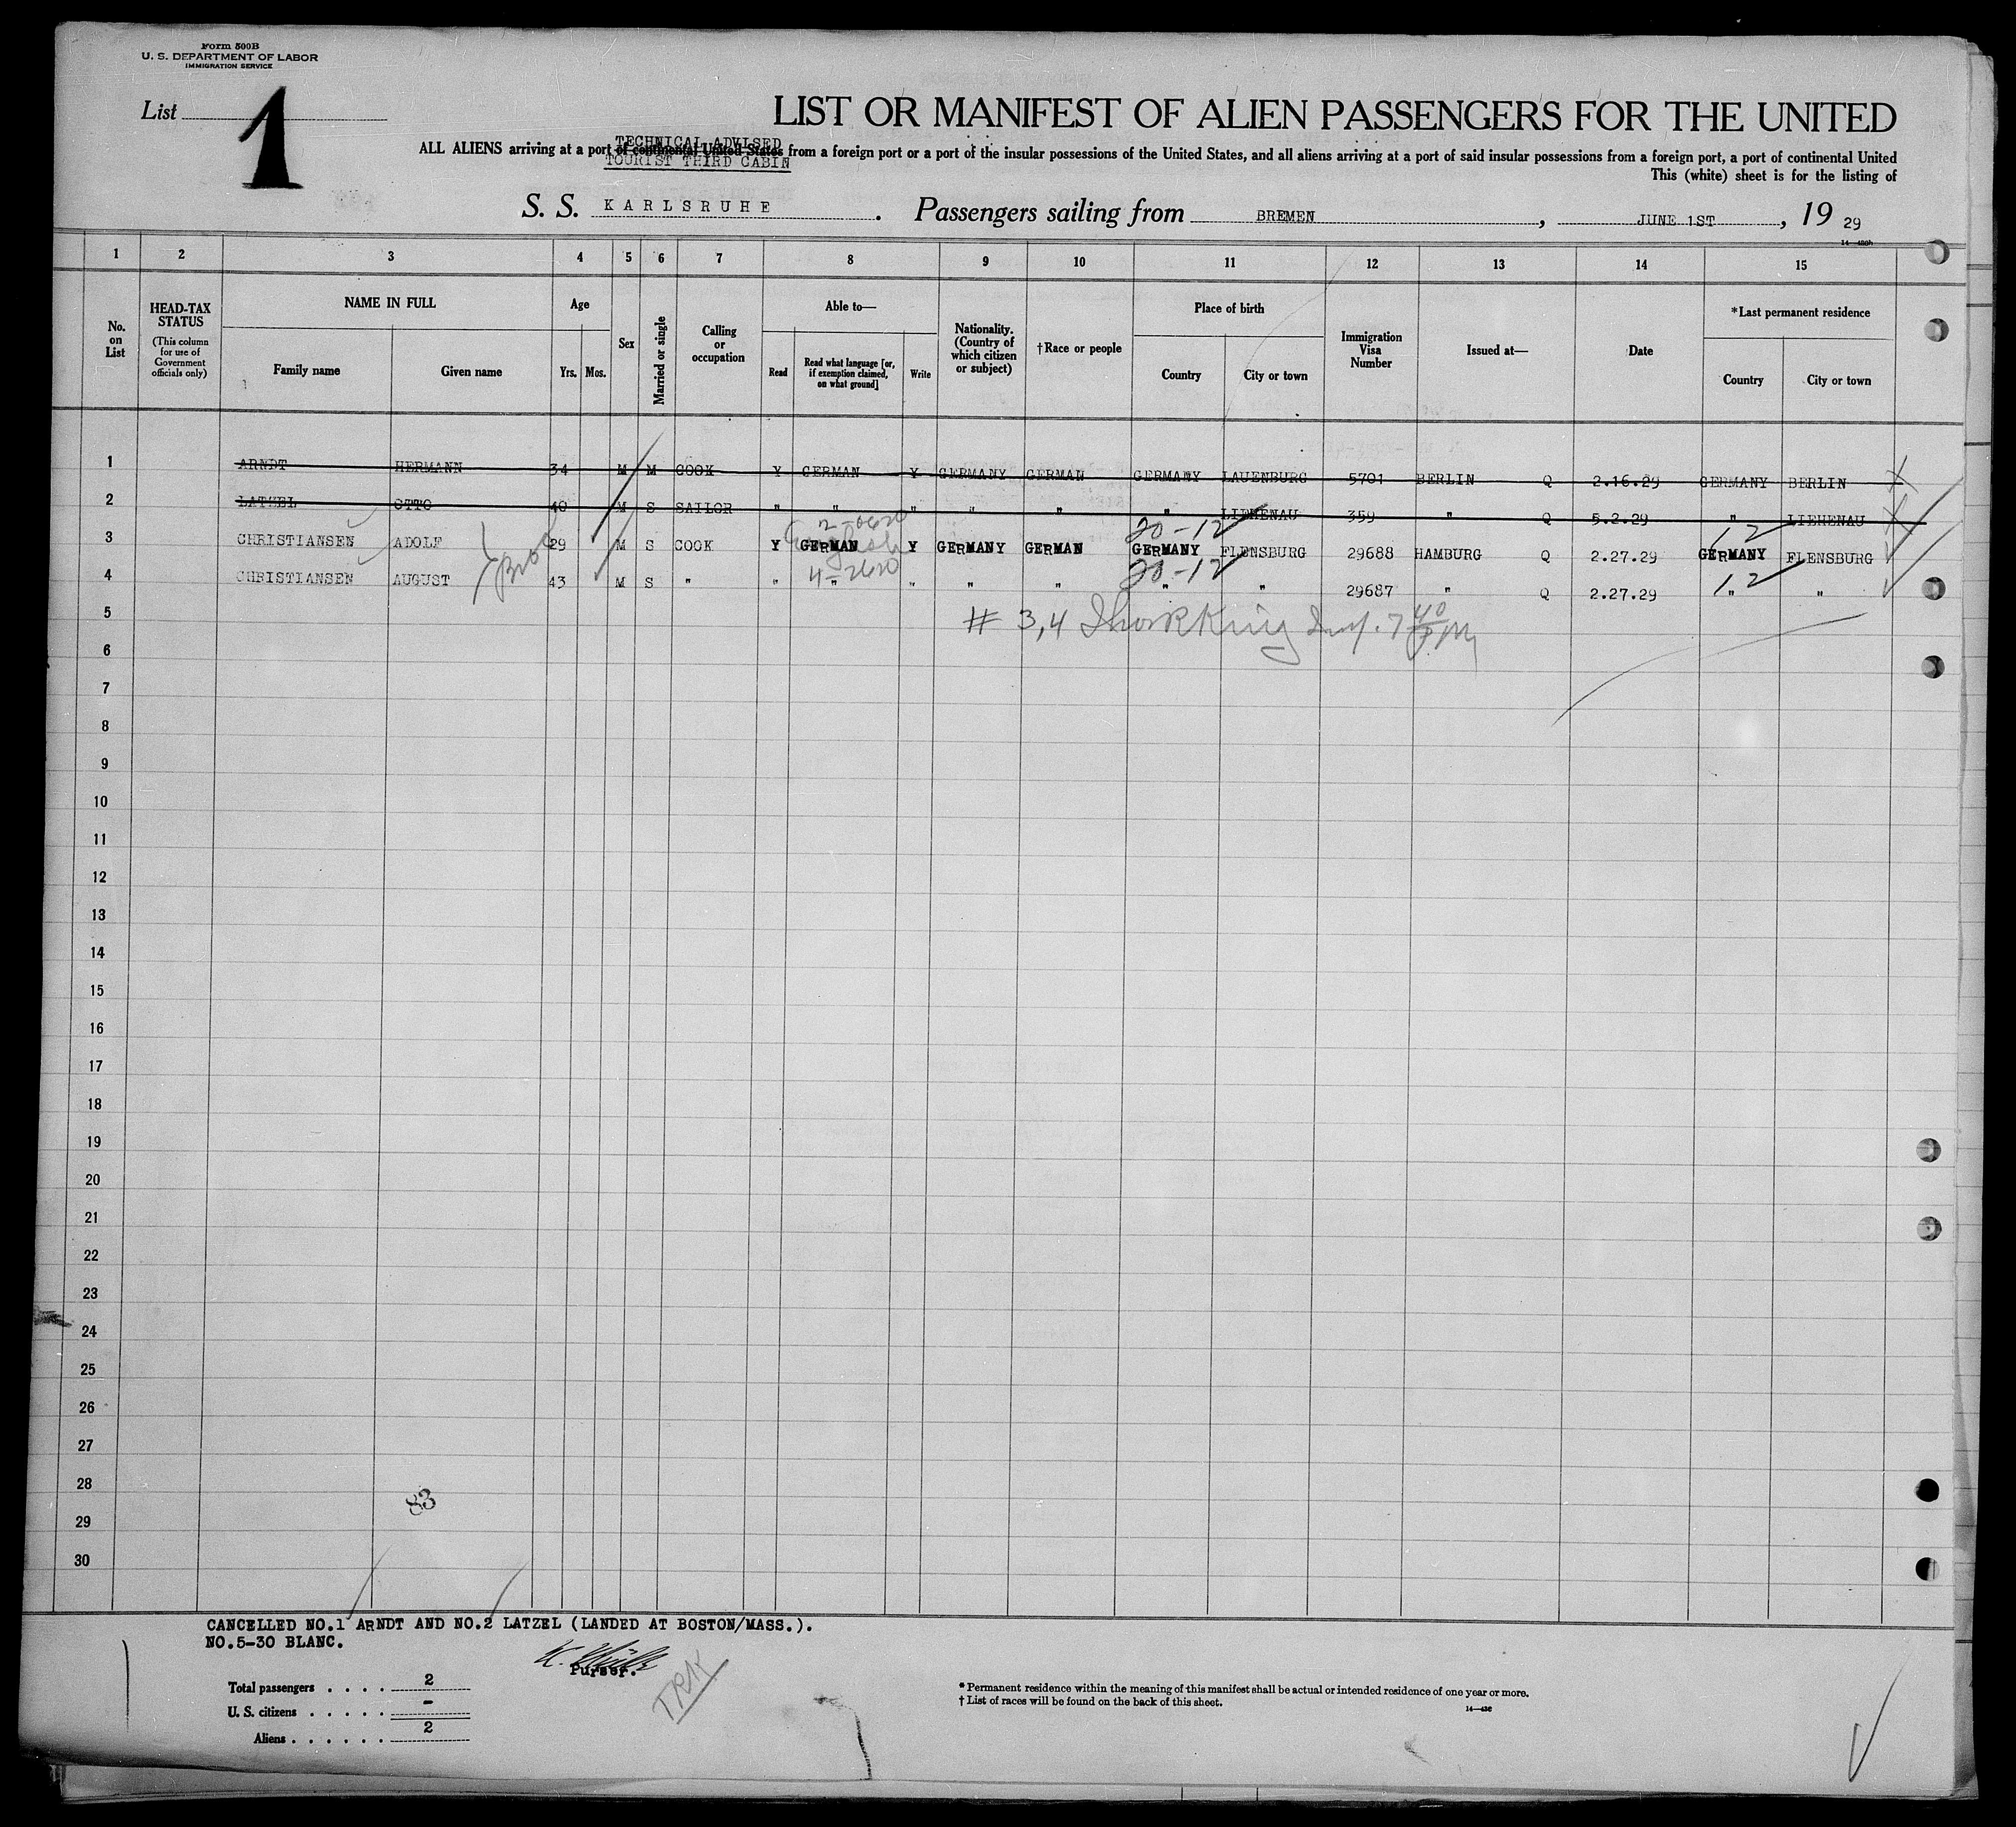 Form 500B
U. S. DEPARTMENT OF LABOR
IMMIGRATION SERVICE
List 1
LIST OR MANIFEST OF ALIEN PASSENGERS FOR THE UNITED
TECHNICAL ADVISED
ALL ALIENS arriving at a port of continental United States from a foreign port or a port of the insular possessions of the United States, and all aliens arriving at a port of said insular possessions from a foreign port, a port of continental United
TOURIST THIRD CABIN
This (white) sheet is for the listing of
S. S. KARLSRUHE. Passengers sailing from BREMEN, JUNE 1ST, 19 29
1 2 3 4 5 6 7 8 9 10 11 12 13 14 15
No. on List
HEAD-TAX STATUS
(This column for use of Government officials only)
NAME IN FULL
Family name
Given name
Age
Yrs. Mos.
Sex
Married or single
Calling or occupation
Able to—
Read
Read what language [or, if exemption claimed, on what ground]
Write
Nationality. (Country of which citizen or subject)
†Race or people
Place of birth
Country
City or town
Immigration Visa Number
Issued at—
Date
*Last permanent residence
Country
City or town
1 ARNDT HERMANN 34 M M COOK Y GERMAN Y GERMANY GERMAN GERMANY LAUENBURG 5701 BERLIN Q 2.16.29 GERMANY BERLIN
2 LATZEL OTTO 40 M S SAILOR " " " " " " LIEHENAU 359 " Q 5.2.29 " LIEHENAU
20-12 12
3 CHRISTIANSEN ADOLF 29 M S COOK Y GERMAN Y GERMANY GERMAN GERMANY FLENSBURG 29688 HAMBURG Q 2.27.29 GERMANY FLENSBURG
English
20-12 12
4 CHRISTIANSEN AUGUST 43 M S " " " " " " " " 29687 " Q 2.27.29 " "
5 # 3,4
6
7
8
9
10
11
12
13
14
15
16
17
18
19
20
21
22
23
24
25
26
27
28
83
29
30
CANCELLED NO.1 ARNDT AND NO.2 LATZEL (LANDED AT BOSTON/MASS.).
NO.5-30 BLANC.
Purser.
Total passengers . . . . 2
U. S. citizens . . . . . -
Aliens . . . . . . 2
TRK
* Permanent residence within the meaning of this manifest shall be actual or intended residence of one year or more.
† List of races will be found on the back of this sheet.